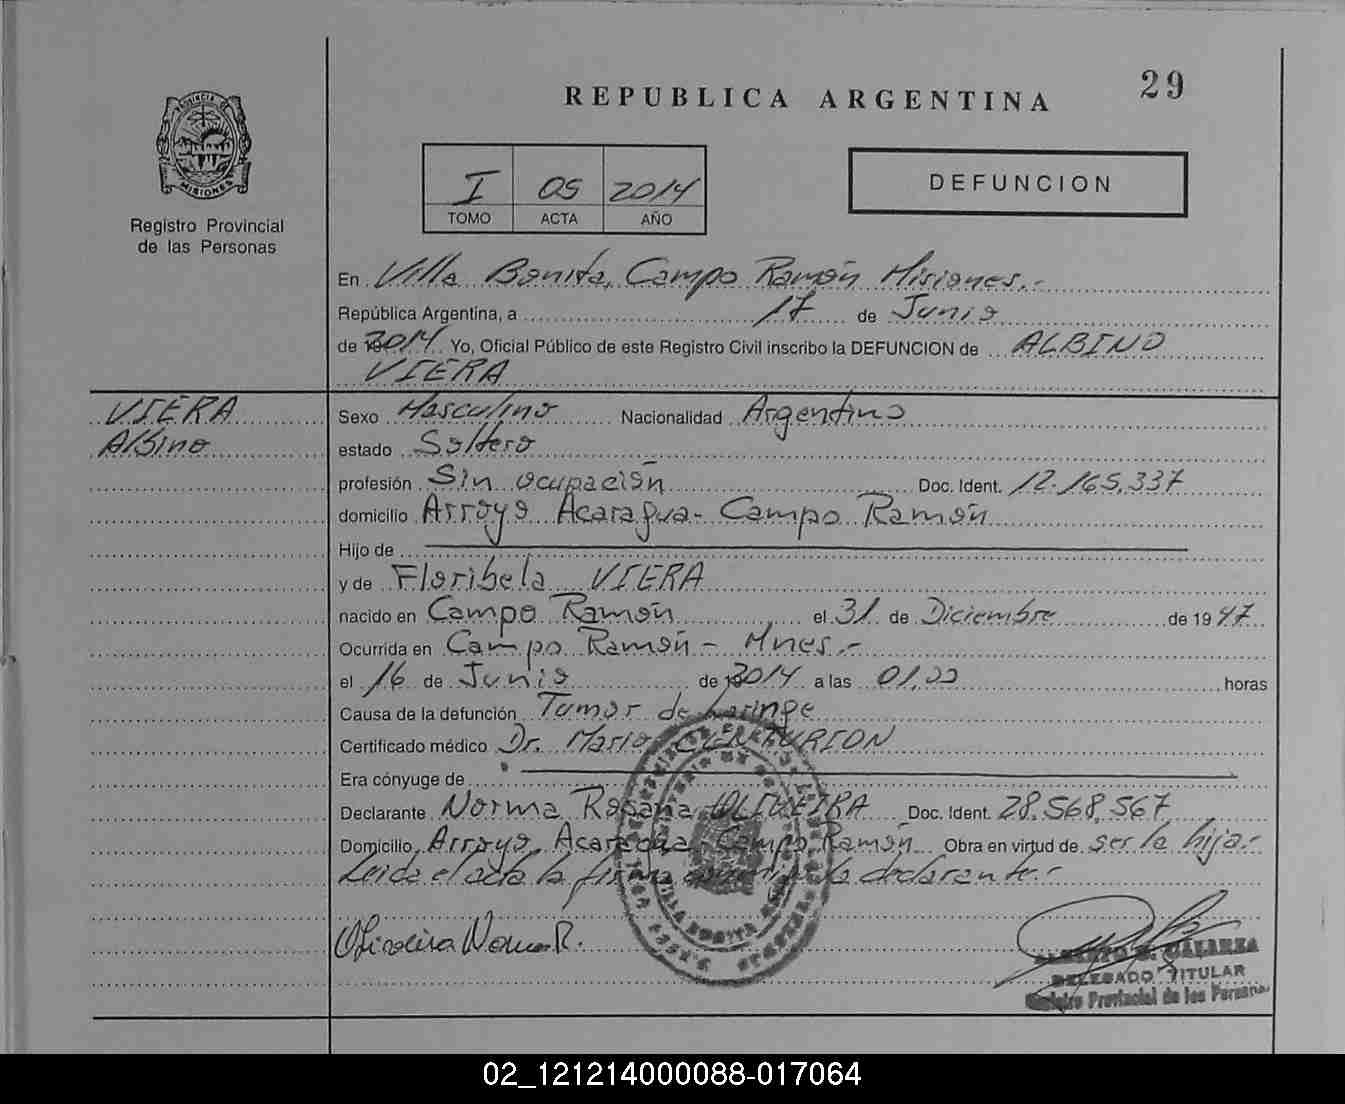 29
REPUBLICA ARGENTINA
PROVINCIA DE
MISIONES
Registro Provincial
de las Personas
I 05 2014
TOMO ACTA AÑO
DEFUNCION
En Villa Bonita, Campo Ramón Misiones.-
República Argentina, a 17 de Junio
de 2014 Yo, Oficial Público de este Registro Civil inscribo la DEFUNCION de ALBINO
VIERA
VIERA
Albino
Sexo Masculino Nacionalidad Argentino
estado Soltero
profesión Sin ocupación Doc. Ident. 12.165.337
domicilio Arroyo Acaragua- Campo Ramón
Hijo de
y de Floribela VIERA
nacido en Campo Ramón el 31 de Diciembre de 1947
Ocurrida en Campo Ramón - Mnes.-
el 16 de Junio de 2014 a las 01,00 horas
Causa de la defunción Tumor de Laringe
Certificado médico Dr. Mario CENTURION
Era cónyuge de
Declarante Norma Rosana OLIVEIRA Doc. Ident. 28.568.567
Domicilio Arroyo Acaragua- Campo Ramón Obra en virtud de ser la hija.-
Leida el acta la firma la declarante.-
Oliveira Norma R.
DELEGADO TITULAR
Registro Provincial de las Personas
VILLA BONITA
02_121214000088-017064